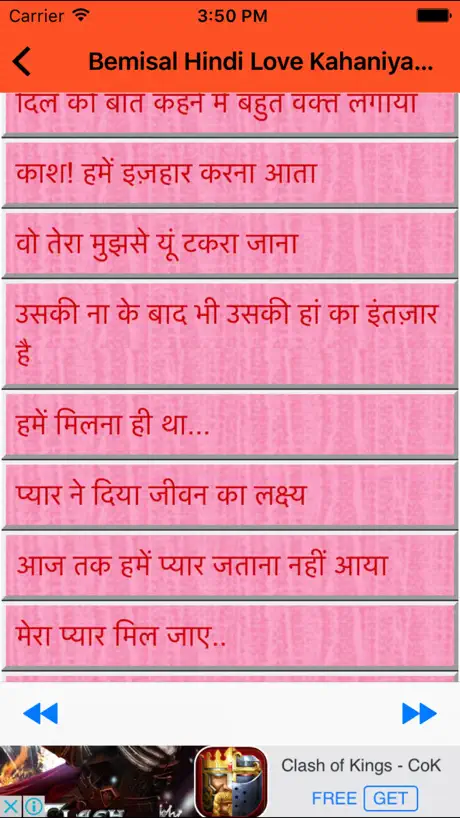 Carrier 3:50 PM
Bemisal Hindi Love Kahaniya...
दिल की बात कहने में बहुत वक्त लगाया
काश! हमें इज़हार करना आता
वो तेरा मुझसे यूं टकरा जाना
उसकी ना के बाद भी उसकी हां का इंतज़ार
है
हमें मिलना ही था...
प्यार ने दिया जीवन का लक्ष्य
आज तक हमें प्यार जताना नहीं आया
मेरा प्यार मिल जाए..
Clash of Kings - CoK
FREE GET
CLASH